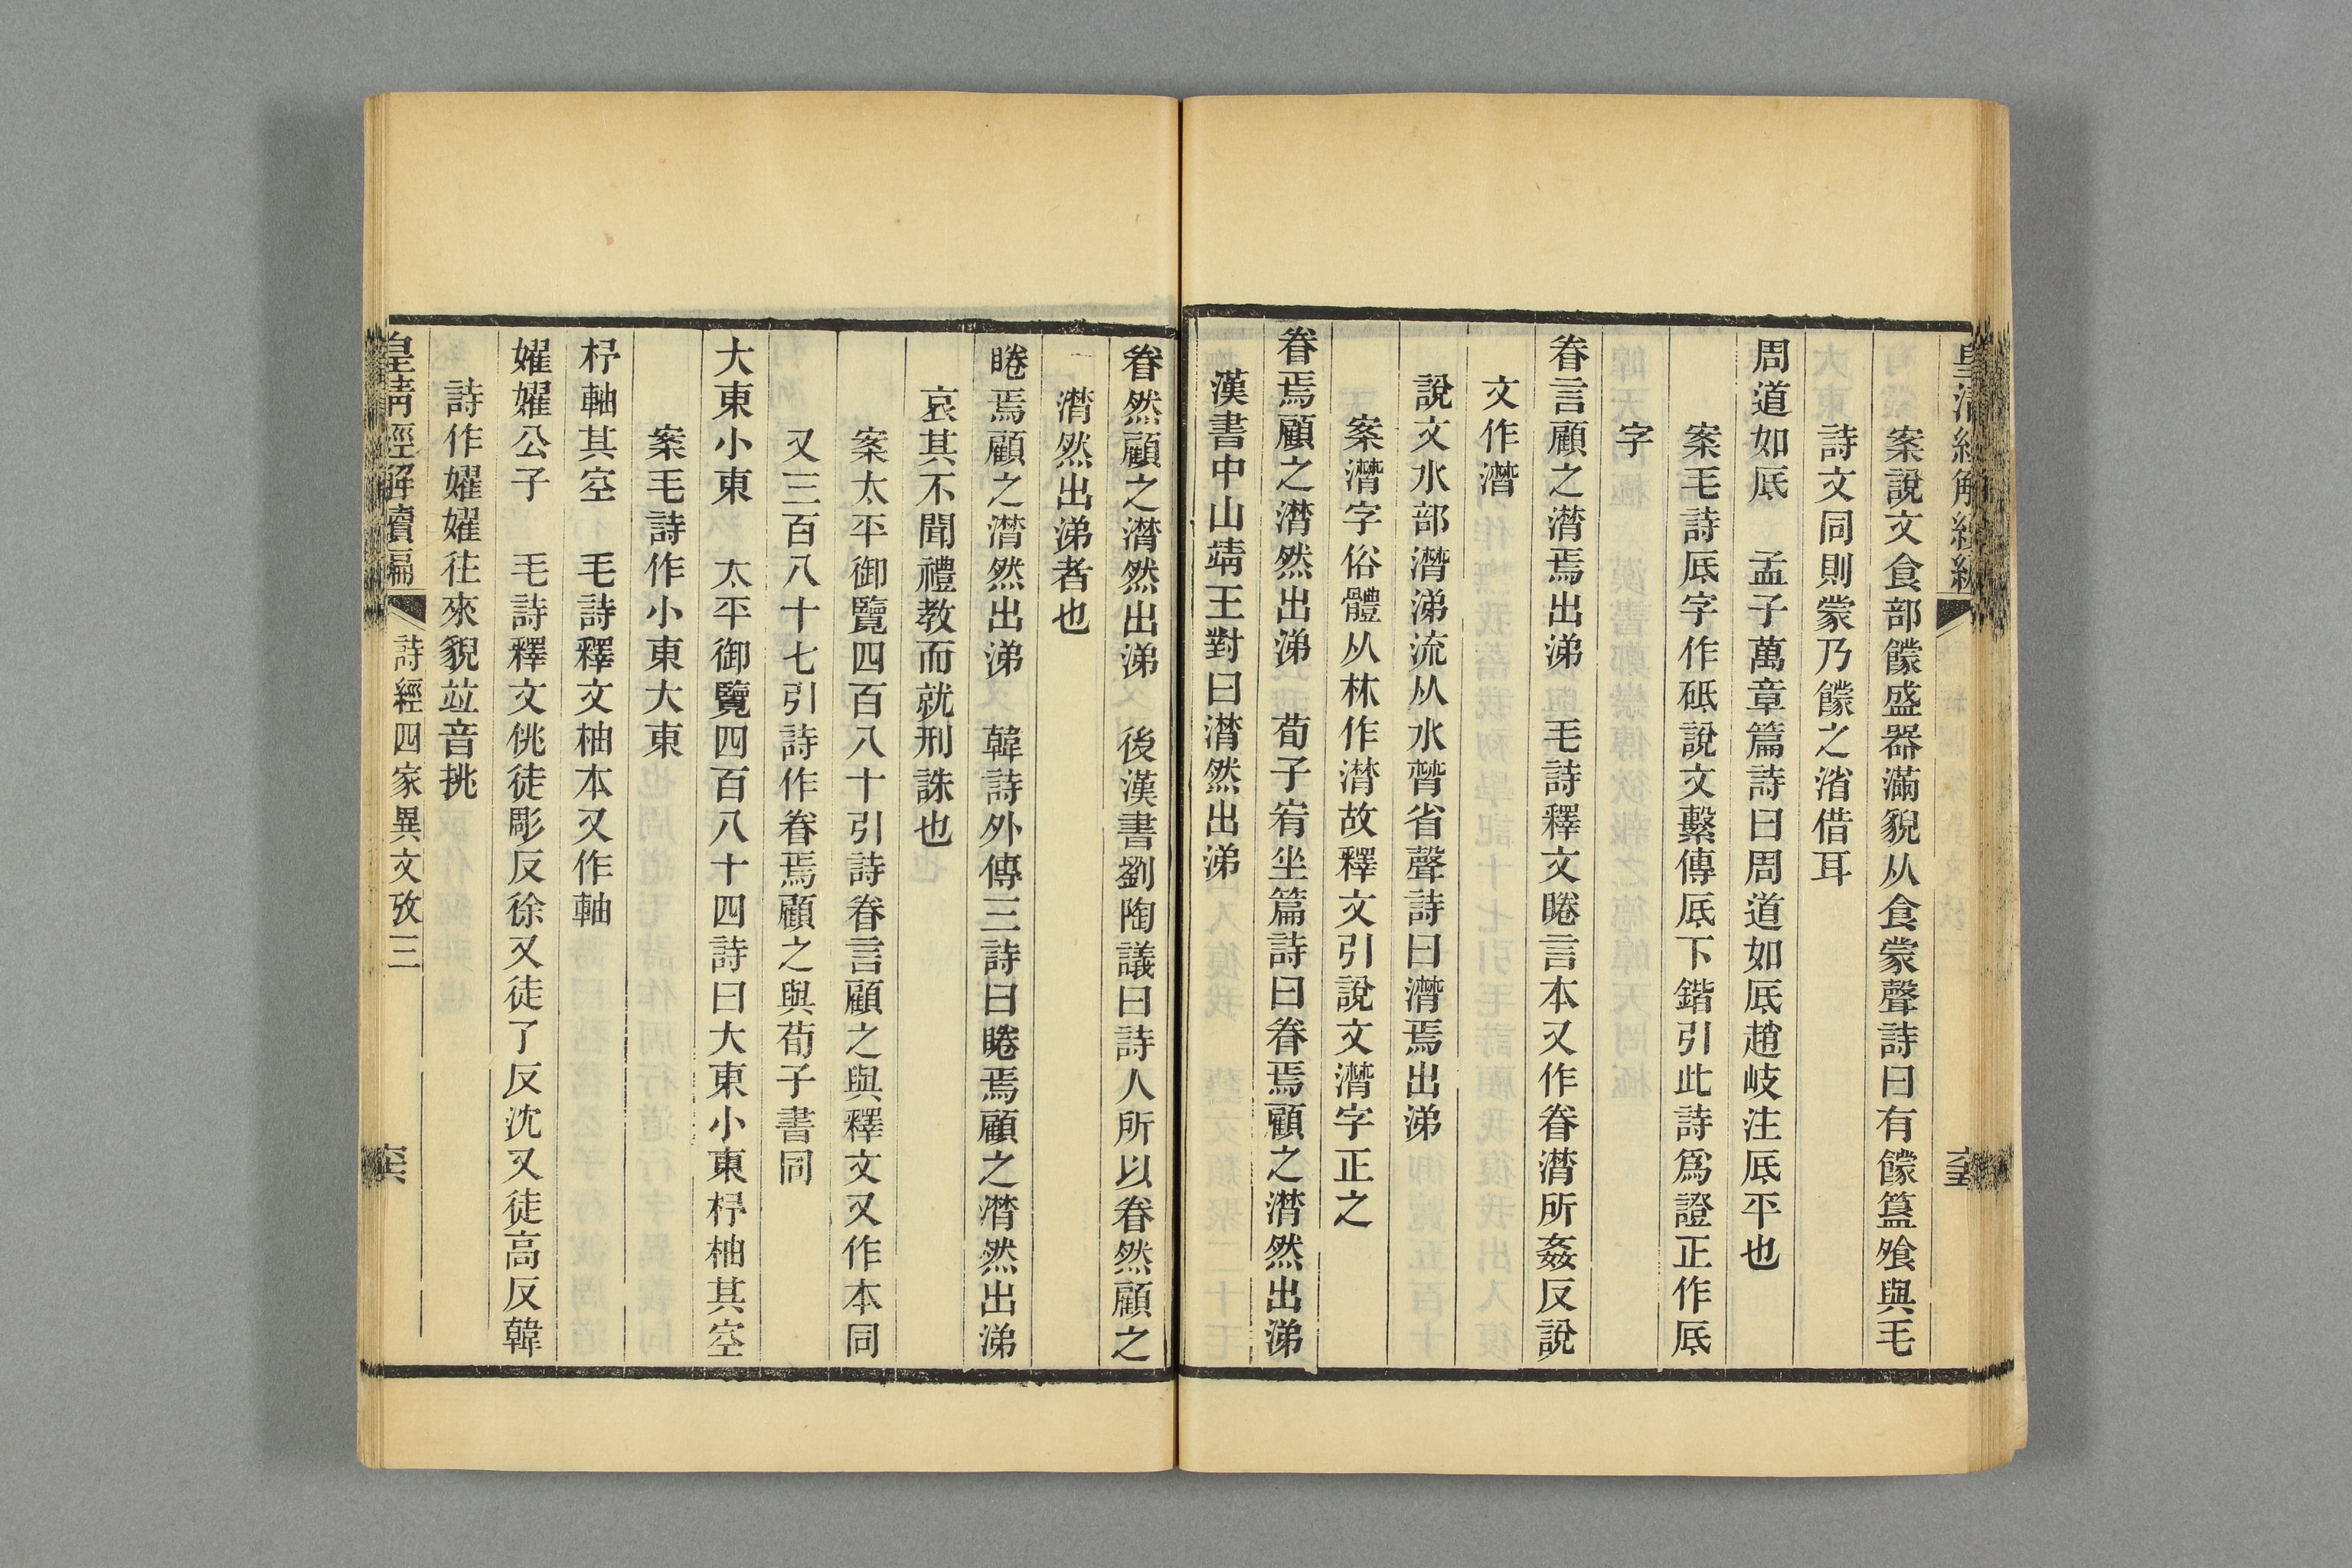 案說文食部饛盛器滿貌从食蒙聲詩曰有饛簋飧與毛
詩文同則蒙乃饛之渻借耳
周道如厎　孟子萬章篇詩曰周道如厎趙岐注厎平也
案毛詩厎字作砥說文繫傳厎下鍇引此詩爲證正作厎
字
眷言顧之潸焉出涕　毛詩釋文睠言本又作眷潸所姦反說
文作潸
說文水部潸涕流从水散省聲詩曰潸焉出涕
案潸字俗體从林作潸故釋文引說文潸字正之
眷焉顧之潸然出涕　荀子宥坐篇詩曰眷焉顧之潸然出涕
漢書中山靖王對曰潸然出涕
眷然顧之潸然出涕　後漢書劉陶議曰詩人所以眷然顧之
潸然出涕者也
睠焉顧之潸然出涕　韓詩外傳三詩曰睠焉顧之潸然出涕
哀其不聞禮教而就刑誅也
案太平御覽四百八十引詩眷言顧之與釋文又作本同
又三百八十七引詩作眷焉顧之與荀子書同
大東小東　太平御覽四百八十四詩曰大東小東杼柚其空
案毛詩作小東大東
杼軸其空　毛詩釋文柚本又作軸
嬥嬥公子　毛詩釋文佻徒彫反徐又徒了反沈又徒高反韓
詩作嬥嬥往來貌竝音挑
皇清經解續編　詩經四家異文攷三